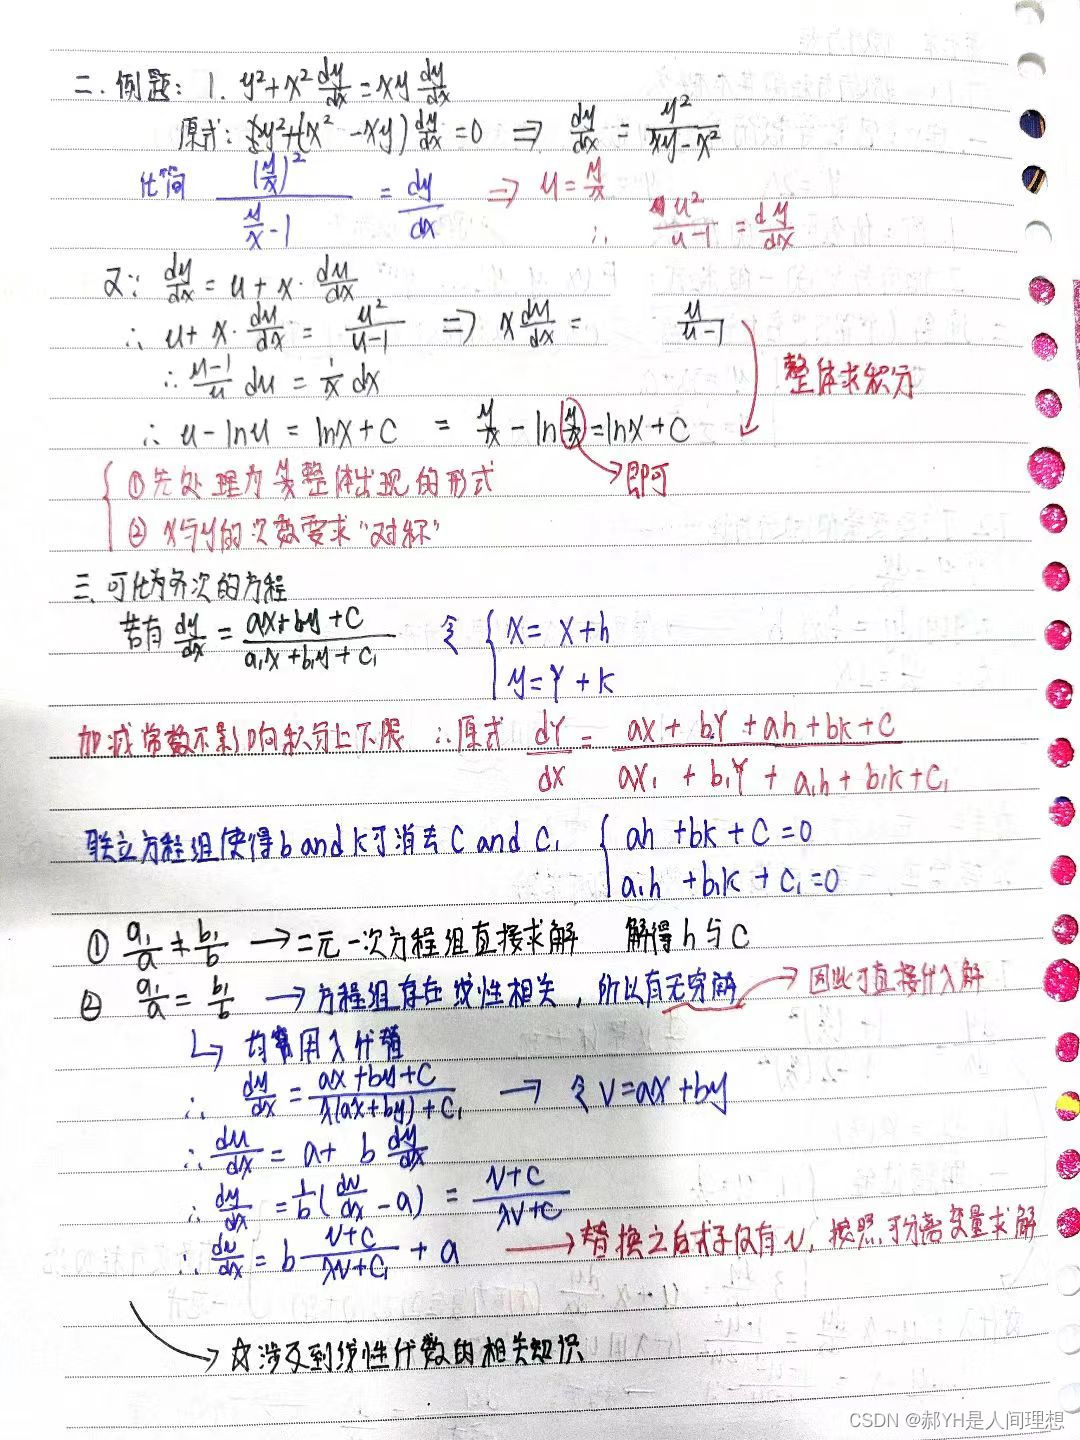 二. 例题: 1. y²+x² dy/dx = xy dy/dx
原式: y²+(x² -xy) dy/dx = 0 ⇒ dy/dx = y²/(xy-x²)
化简 (y/x)²/(y/x -1) = dy/dx ⇒ u = y/x
∴ u²/(u-1) = dy/dx
又∵ dy/dx = u + x· du/dx
∴ u+ x· du/dx = u²/(u-1) ⇒ x du/dx = u/(u-1)
整体求积分
∴ (u-1)/u du = 1/x dx
∴ u-lnu = lnx+C = y/x - ln y/x = lnx+C
{ ①先处理为 y/x 整体出现的形式 →即可
② x与y的次数要求"对称"
三. 可化为齐次的方程
若有 dy/dx = (ax+by+C)/(a₁x+b₁y+C₁) 令 { x = X+h
y = Y+k
加减常数不影响积分上下限 ∴原式 dY/dX = (aX+bY+ah+bk+C)/(aX₁+b₁Y+a₁h+b₁k+C₁
联立方程组使得b and k可消去 C and C₁ { ah +bk + C =0
a₁h +b₁k + C₁=0
① a₁/a ≠ b₁/b → 二元一次方程组直接求解 解得h与C
② a₁/a = b₁/b → 方程组存在线性相关, 所以有无穷解 → 因此可直接代入解
↳ 均常用λ代替
∴ dy/dx = (ax+by+C)/(λ(ax+by)+C₁) → 令V=ax+by
∴ du/dx = a+ b dy/dx
∴ dy/dx = 1/b (dv/dx - a) = (v+C)/(λv+C)
∴ dv/dx = b (v+C)/(λv+C₁) + a → 替换之后式子仅有v, 按照可分离变量求解
→ ☆涉及到线性代数的相关知识
CSDN @郝YH是人间理想